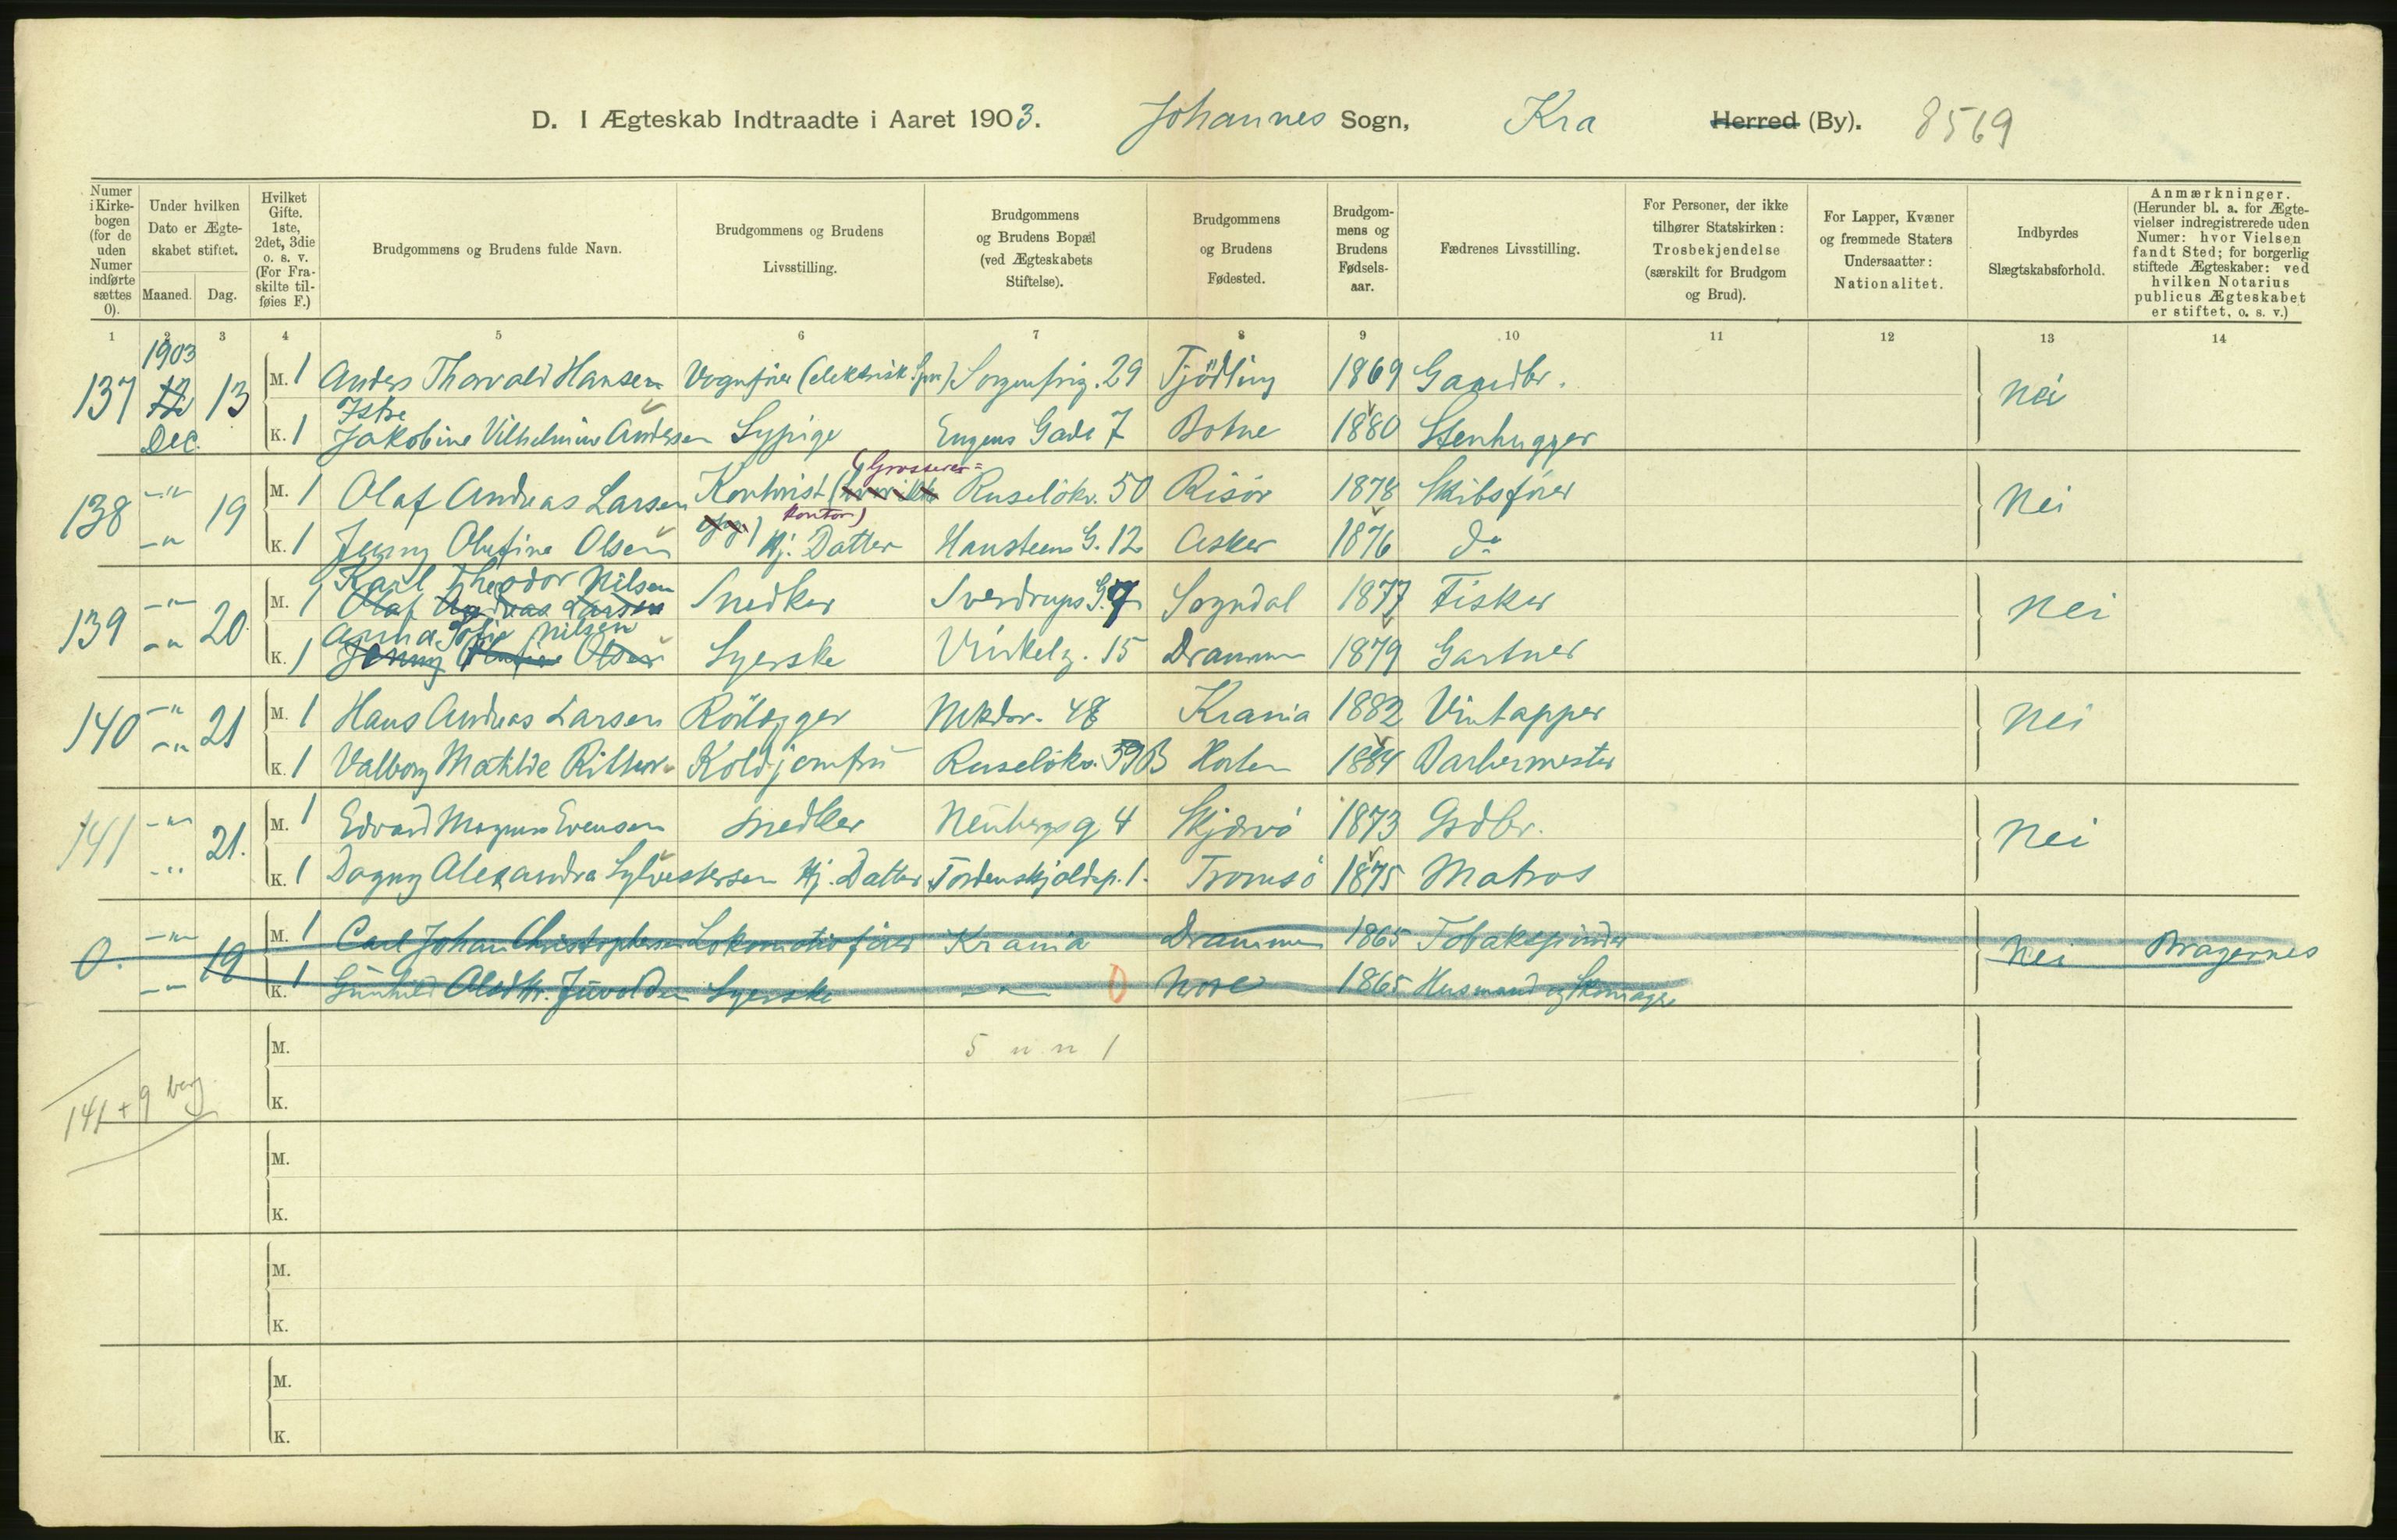 D. I Ægteskab Indtraadte i Aaret 1903. Johannes Sogn, Kra Herred (By). 8569
Numer i Kirkebogen (for de uden Numer indførte sættes 0).
Under hvilken Dato er Ægteskabet stiftet.
Maaned. Dag.
Hvilket Gifte. 1ste, 2det, 3die o. s. v. (For Fraskilte tilføies F.)
Brudgommens og Brudens fulde Navn.
Brudgommens og Brudens Livsstilling.
Brudgommens og Brudens Bopæl (ved Ægteskabets Stiftelse).
Brudgommens og Brudens Fødested.
Brudgommens og Brudens Fødselsaar.
Fædrenes Livsstilling.
For Personer, der ikke tilhører Statskirken: Trosbekjendelse (særskilt for Brudgom og Brud).
For Lapper, Kvæner og fremmede Staters Undersaatter: Nationalitet.
Indbyrdes Slægtskabsforhold.
Anmærkninger. (Herunder bl. a. for Ægtevielser indregistrerede uden Numer: hvor Vielsen fandt Sted; for borgerlig stiftede Ægteskaber: ved hvilken Notarius publicus Ægteskabet er stiftet, o. s. v.)
1 2 3 4 5 6 7 8 9 10 11 12 13 14
1903
137 12 13 M. 1 Anders Thorvald Hansen Vognfører (elektrisk Spv) Sorgenfrig. 29 Tjødling 1869 Gaardbr. Nei
Istre
Dec. K. 1 Jakobine Vilhelmine Andersen Sypige Eugens Gade 7 Botne 1880 Stenhugger
(Grosserer=
138 -"- 19 M. 1 Olaf Andreas Larsen Kontorist Ruseløkv. 50 Risør 1878 Skibsfører Nei
kontor)
-"- K. 1 Jenny Olufine Olsen Hj. Datter Hansteens G. 12 Asker 1876 do
Karl Theodor Nilsen
139 -"- 20 M. 1 Olaf Andreas Larsen Snedker Sverdrups G. 7 Sogndal 1877 Fisker Nei
Anna Sofie Nilsen
-"- K. 1 Jenny Olufine Olsen Syerske Vinkelg. 15 Drammen 1879 Gartner
140 -"- 21 M. 1 Hans Andreas Larsen Rørlægger Mkdsv. 48 Krania 1882 Vintapper Nei
-"- K. 1 Valborg Mathilde Ritter Koldjomfru Ruseløkv. 59B Horten 1884 Barbermester
141 -"- 21. M. 1 Edvard Magnus Evensen Snedker Neubergs g 4 Skjærvø 1873 Grdbr. Nei
-"- K. 1 Dagny Alexandra Sylvestersen Hj. Datter Tordenskjoldsp. 1. Tromsø 1875 Matros
0. -"- 19 M. 1 Carl Johan Christophersen Lokomotivfører Krania Drammen 1865 Tobakspinder Nei Bragernes
-"- K. 1 Gunhild Olsdtr. Juvelden Syerske -"- 0 Nore 1865 Husmand og Skomager
M. 5 u n 1
141 + 9 borg
K.
M.
K.
M.
K.
M.
K.